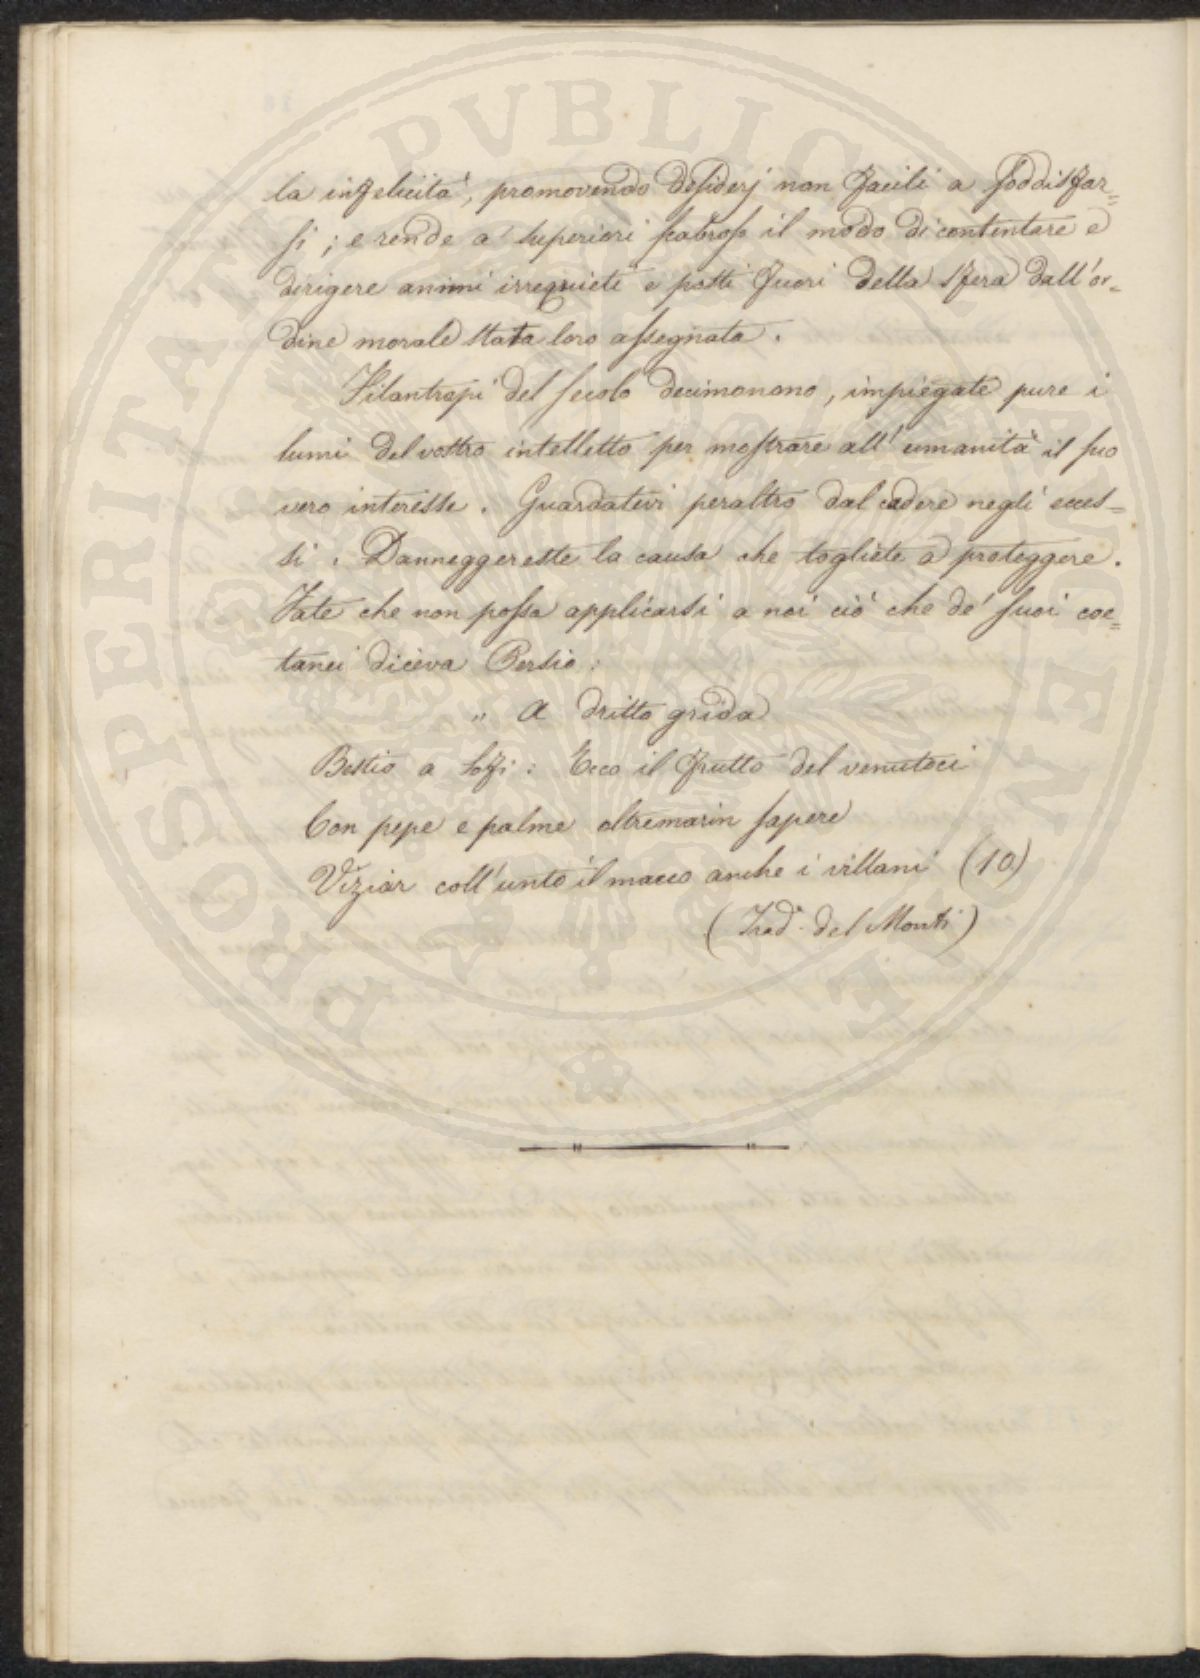 la infelicità, promovendo desiderj non facili a soddisfar=
si; e rende a' superiori scabroso il modo di contentare e
dirigere animi irrequieti e posti fuori della sfera dall'or=
dine morale stata loro assegnata.
Filantropi del secolo decimonono, impiegate pure i
lumi del vostro intelletto per mostrare all'umanità il suo
vero interesse. Guardatevi peraltro dal cadere negli ecces=
si. Danneggereste la causa che togliete a proteggere.
Fate che non possa applicarsi a noi ciò che de' suoi coe=
tanei diceva Persio:
" A dritto grida
Bestio a Sofi: Ecco il frutto del venutoci
Con pepe e palme oltremarin sapere
Viziar coll'unto il macco anche i villani (10)
(Trad. del Monti)
PROSPERITATI PUBLICAE